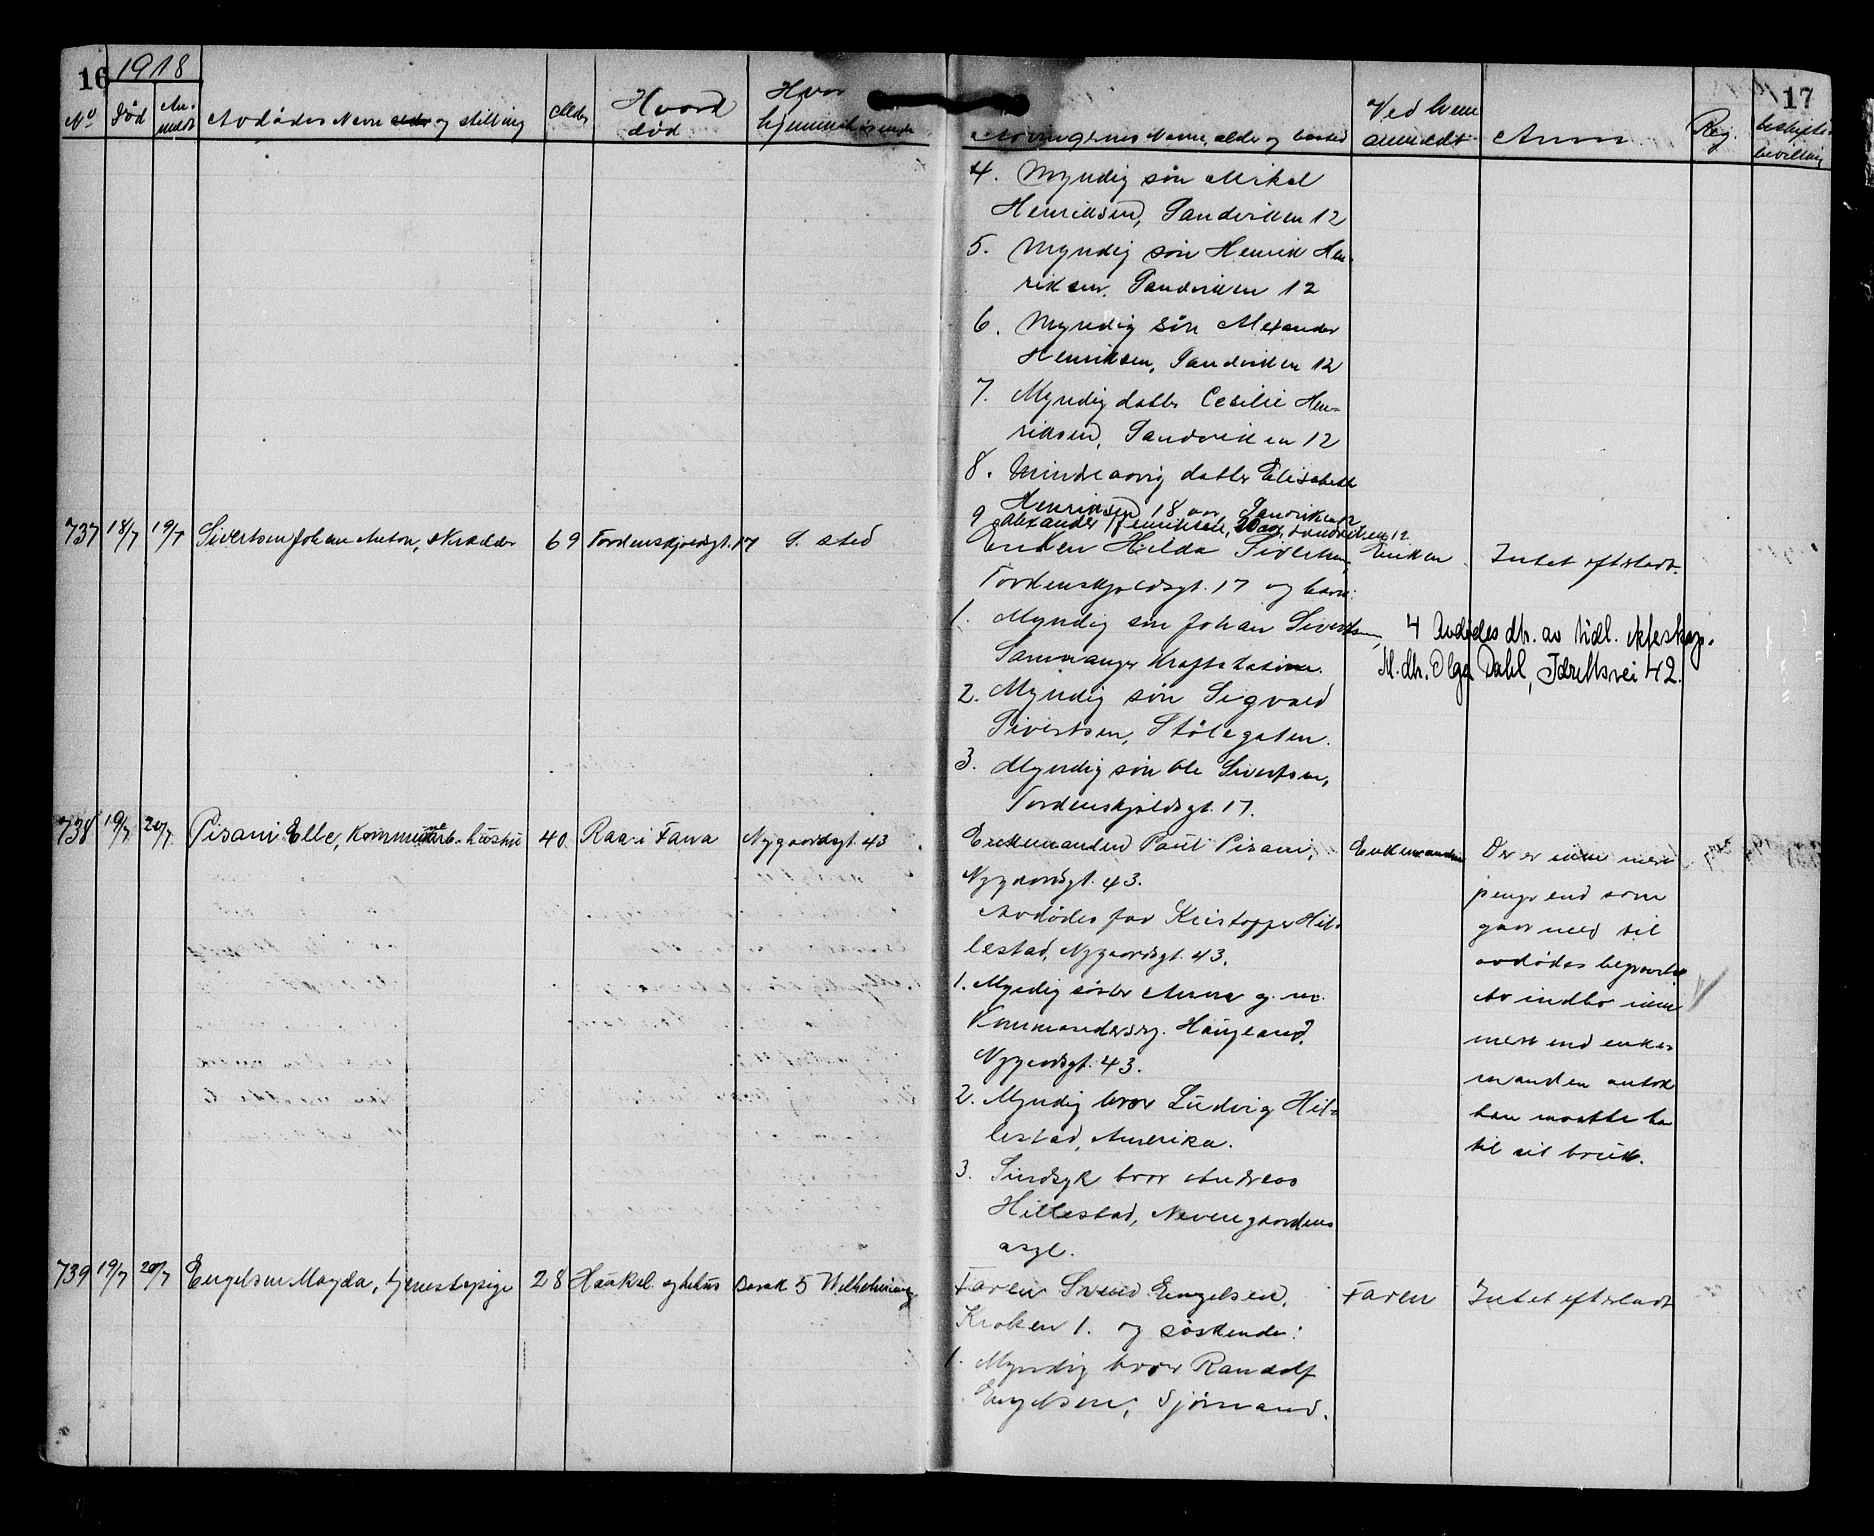 16 1918
No Død Anmeldt Avdødes Navn alder og stilling Alder Hvor død Hvor hjemmehørende
737 18/7 19/7 Sivertsen Johan Anton, skrædder 69 Tordenskjoldsgt. 17 S. sted
738 19/7 20/7 Pisani Elle, kommunearb. hustru 40 Raa i Fana Nygaardsgt. 43
739 19/7 20/7 Engelsen Magda, tjenestepige 28 Haukel. sykehus Barak 5 Wilhelmineg
17
Arvingernes Navne, alder og bosted Ved hvem anmeldt Anm Reg. bevilling
4. Myndig søn Mikal
Henriksen, Sandviken 12
5. Myndig søn Henrik Hen-
riksen, Sandviken 12
6. Myndig søn Alexander
Henriksen, Sandviken 12
7. Myndig datter Cesilie Hen-
riksen, Sandviken 12
8. Mindreaarig datter Elisabeth
Henriksen 18 aar, Sandviken 12
9 Alexander Henriksen, 20 aar, Sandviken 12.
Enken Hilda Sivertsen, Enken Intet efterladt.
Tordenskjoldsgt. 17 og barn:
1. Myndig søn Johan Sivertsen,
Samnanger Kraftstation.
4 Avdødes dtr. av tidl. ekteskap.
M. dtr. Olga Dahl, Idrettsvei 42.
2. Myndig søn Sigvald
Sivertsen, Stølegaten.
3. Myndig søn Ole Sivertsen,
Tordenskjoldsgt. 17.
Enkemanden Paul Pisani, Enkemanden
Nygaardsgt. 43.
Avdødes far Kristoffer Hil-
lestad, Nygaardsgt. 43.
1. Myndig søster Anna g. m.
Kommandersrg. Haugland,
Nygaardsgt. 43.
2. Myndig bror Ludvig Hil-
lestad, Amerika.
3. Sindsyk bror Andreas
Hillestad, Nevengaardens
asyl.
Der er ikke mere
penge end som
gaar med til
avdødes begravelse
Av indbo ikke
mere end enke-
manden antok
han maatte ha
til sit bruk.
Faren Svend Engelsen, Faren Intet efterladt
Kroken 1. og søskende:
1. Myndig bror Randolf
Engelsen, Sjømand.